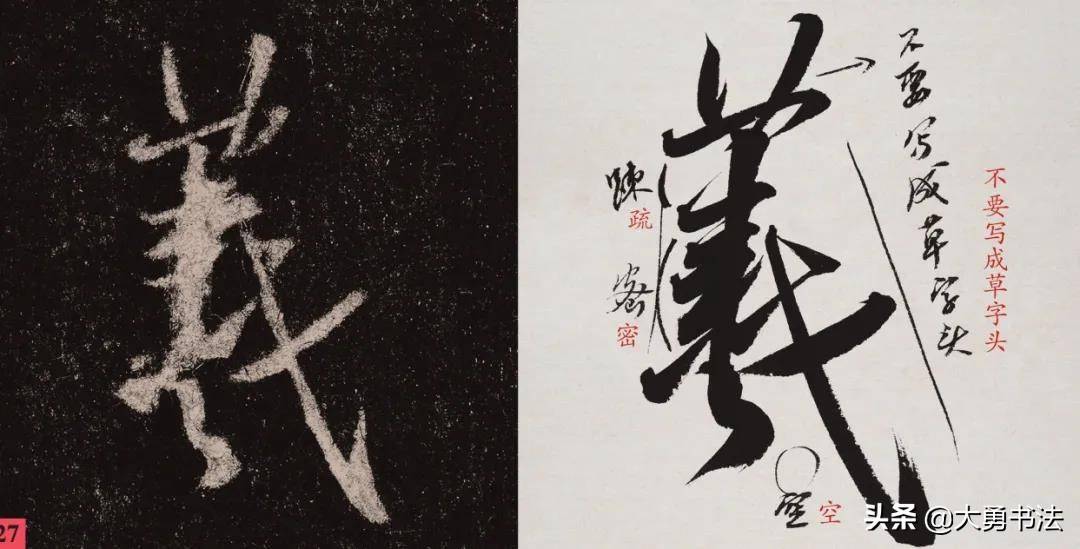 羲
27
羲
不要写成草字头
不要写成草字头
疎
疏
密
密
空
空
头条 @大勇书法